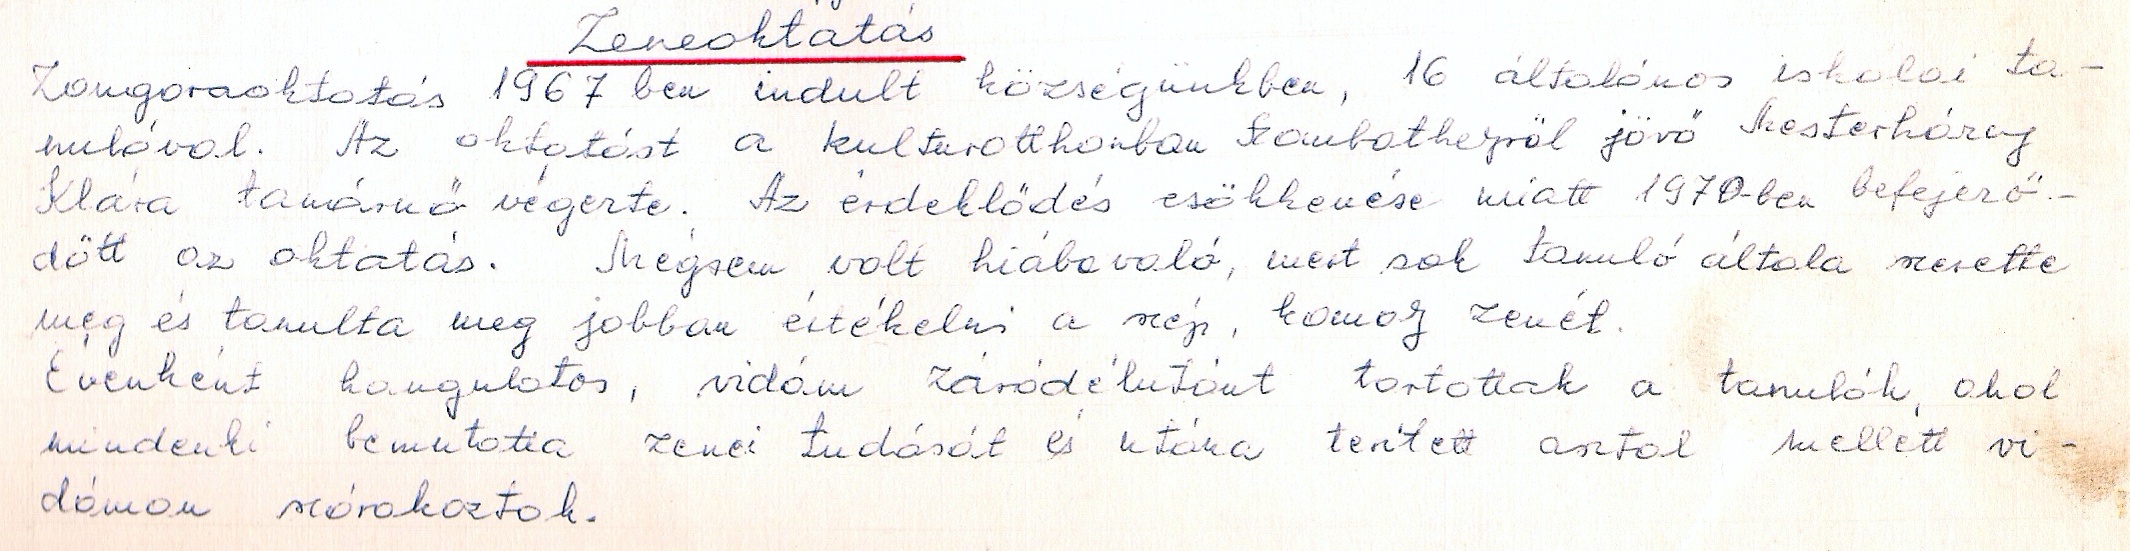 Zeneoktatás
Zongoraoktatás 1967 ben indult községünkben, 16 általános iskolai ta-
nulóval. Az oktatást a kulturotthonban Szombathelyről jövő Mesterházy
Klára tanárnő végezte. Az érdeklődés csökkenése miatt 1970-ben befejező-
dött az oktatás. Mégsem volt hiábavaló, mert sok tanuló általa szerette
meg és tanulta meg jobban értékelni a szép, komoly zenét.
Évenként hangulatos, vidám záródélutánt tartottak a tanulók, ahol
mindenki bemutatta zenei tudását és utána terített asztal mellett vi-
dáman szórakoztak.